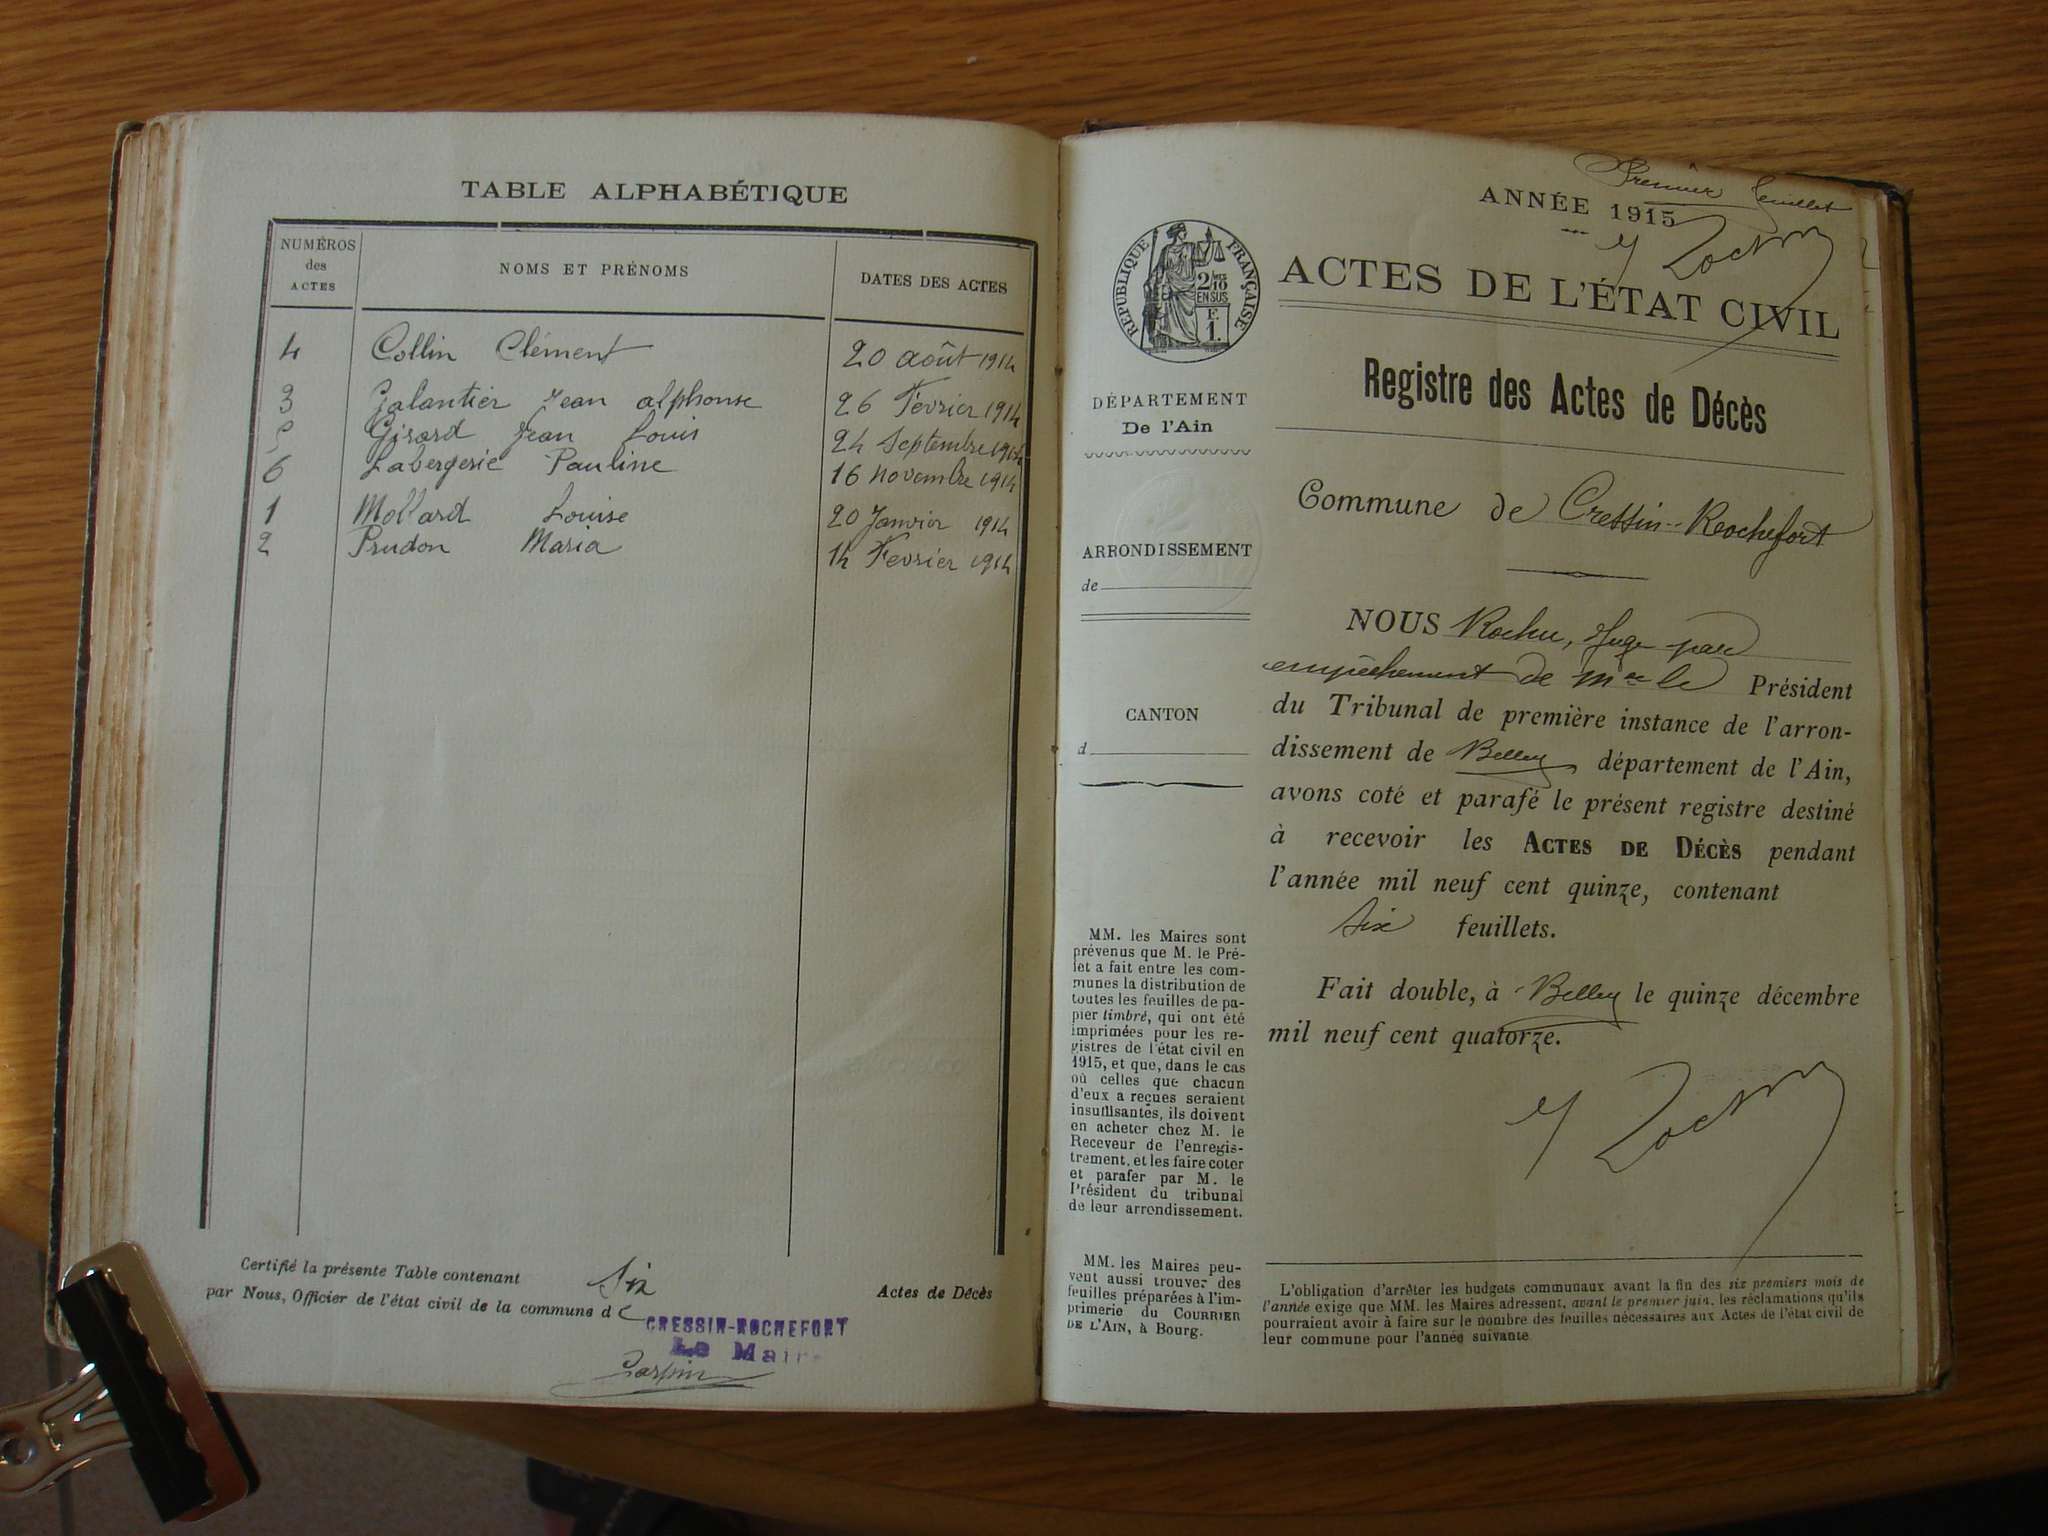 TABLE ALPHABÉTIQUE
NUMÉROS
des
ACTES
NOMS ET PRÉNOMS
DATES DES ACTES
4 Collin Clément 20 août 1914
3 Galantier Jean alphonse 26 Février 1914
5 Girard Jean Louis 24 Septembre 1914
6 Labergerie Pauline 16 novembre 1914
1 Mollard Louise 20 Janvier 1914
2 Prudon Maria 14 Fevrier 1914
Certifié la présente Table contenant Six Actes de Décès
par Nous, Officier de l'état civil de la commune de
CRESSIN-ROCHEFORT
Le Mair
Premier feuillet
ANNÉE 1915
RÉPUBLIQUE FRANÇAISE
2/10
EN SUS
F.
1.
ACTES DE L'ÉTAT CIVIL
Registre des Actes de Décès
DÉPARTEMENT
De l'Ain
Commune de Cressin-Rochefort
ARRONDISSEMENT
de
CANTON
d
NOUS Rochu, Juge par
empêchement de Mr le Président
du Tribunal de première instance de l'arron-
dissement de Belley département de l'Ain,
avons coté et parafé le présent registre destiné
à recevoir les ACTES DE DÉCÈS pendant
l'année mil neuf cent quinze, contenant
six feuillets.
Fait double, à Belley le quinze décembre
mil neuf cent quatorze.
MM. les Maires sont
prévenus que M. le Pré-
fet a fait entre les com-
munes la distribution de
toutes les feuilles de pa-
pier timbré, qui ont été
imprimées pour les re-
gistres de l'état civil en
1915, et que, dans le cas
où celles que chacun
d'eux a reçues seraient
insuffisantes, ils doivent
en acheter chez M. le
Receveur de l'enregis-
trement, et les faire coter
et parafer par M. le
Président du tribunal
de leur arrondissement.
MM. les Maires peu-
vent aussi trouver des
feuilles préparées à l'im-
primerie du COURRIER
DE L'AIN, à Bourg.
L'obligation d'arrêter les budgets communaux avant la fin des six premiers mois de
l'année exige que MM. les Maires adressent, avant le premier juin, les réclamations qu'ils
pourraient avoir à faire sur le nombre des feuilles nécessaires aux Actes de l'état civil de
leur commune pour l'année suivante